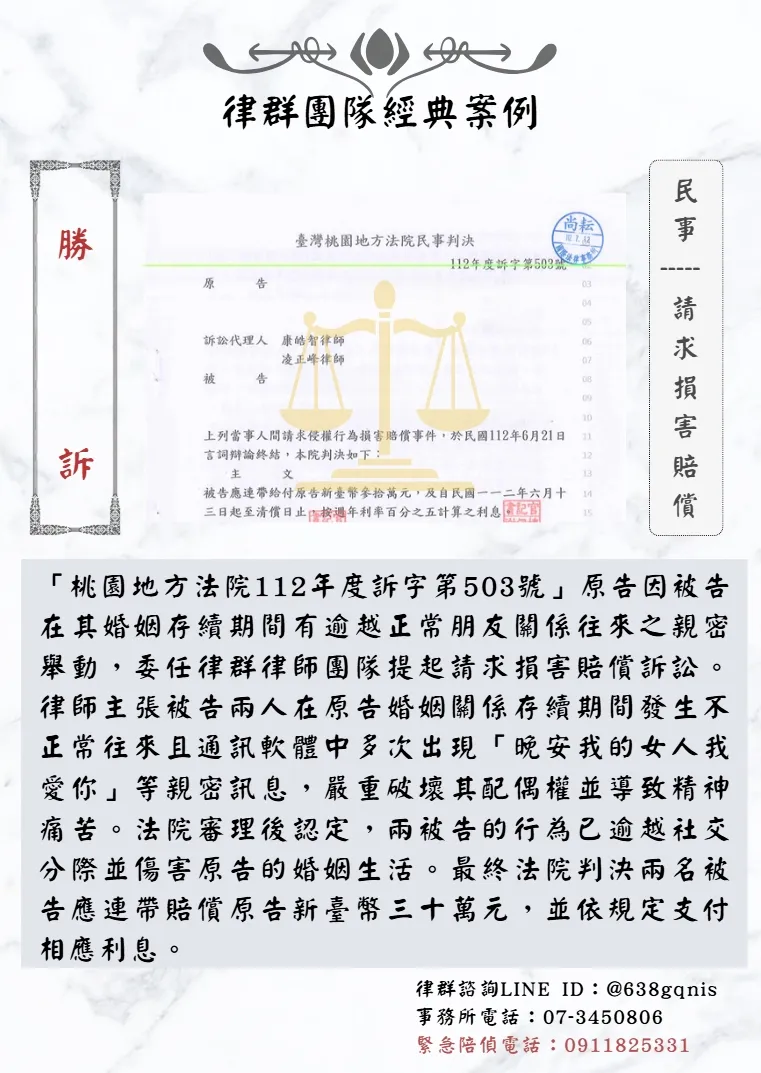 律群團隊經典案例
勝訴
民事-----請求損害賠償
尚耘
臺灣桃園地方法院民事判決
112年度訴字第503號
03
原　　告
04
05
訴訟代理人　康皓智律師
06
凌正峰律師
07
被　　告
08
09
10
上列當事人間請求侵權行為損害賠償事件，於民國112年6月21日
11
言詞辯論終結，本院判決如下：
12
主　　文
13
被告應連帶給付原告新臺幣參拾萬元，及自民國一一二年六月十
14
三日起至清償日止，按週年利率百分之五計算之利息。
15
書記官
「桃園地方法院112年度訴字第503號」原告因被告
在其婚姻存續期間有逾越正常朋友關係往來之親密
舉動，委任律群律師團隊提起請求損害賠償訴訟。
律師主張被告兩人在原告婚姻關係存續期間發生不
正常往來且通訊軟體中多次出現「晚安我的女人我
愛你」等親密訊息，嚴重破壞其配偶權並導致精神
痛苦。法院審理後認定，兩被告的行為已逾越社交
分際並傷害原告的婚姻生活。最終法院判決兩名被
告應連帶賠償原告新臺幣三十萬元，並依規定支付
相應利息。
律群諮詢LINE ID：@638gqnis
事務所電話：07-3450806
緊急陪偵電話：0911825331